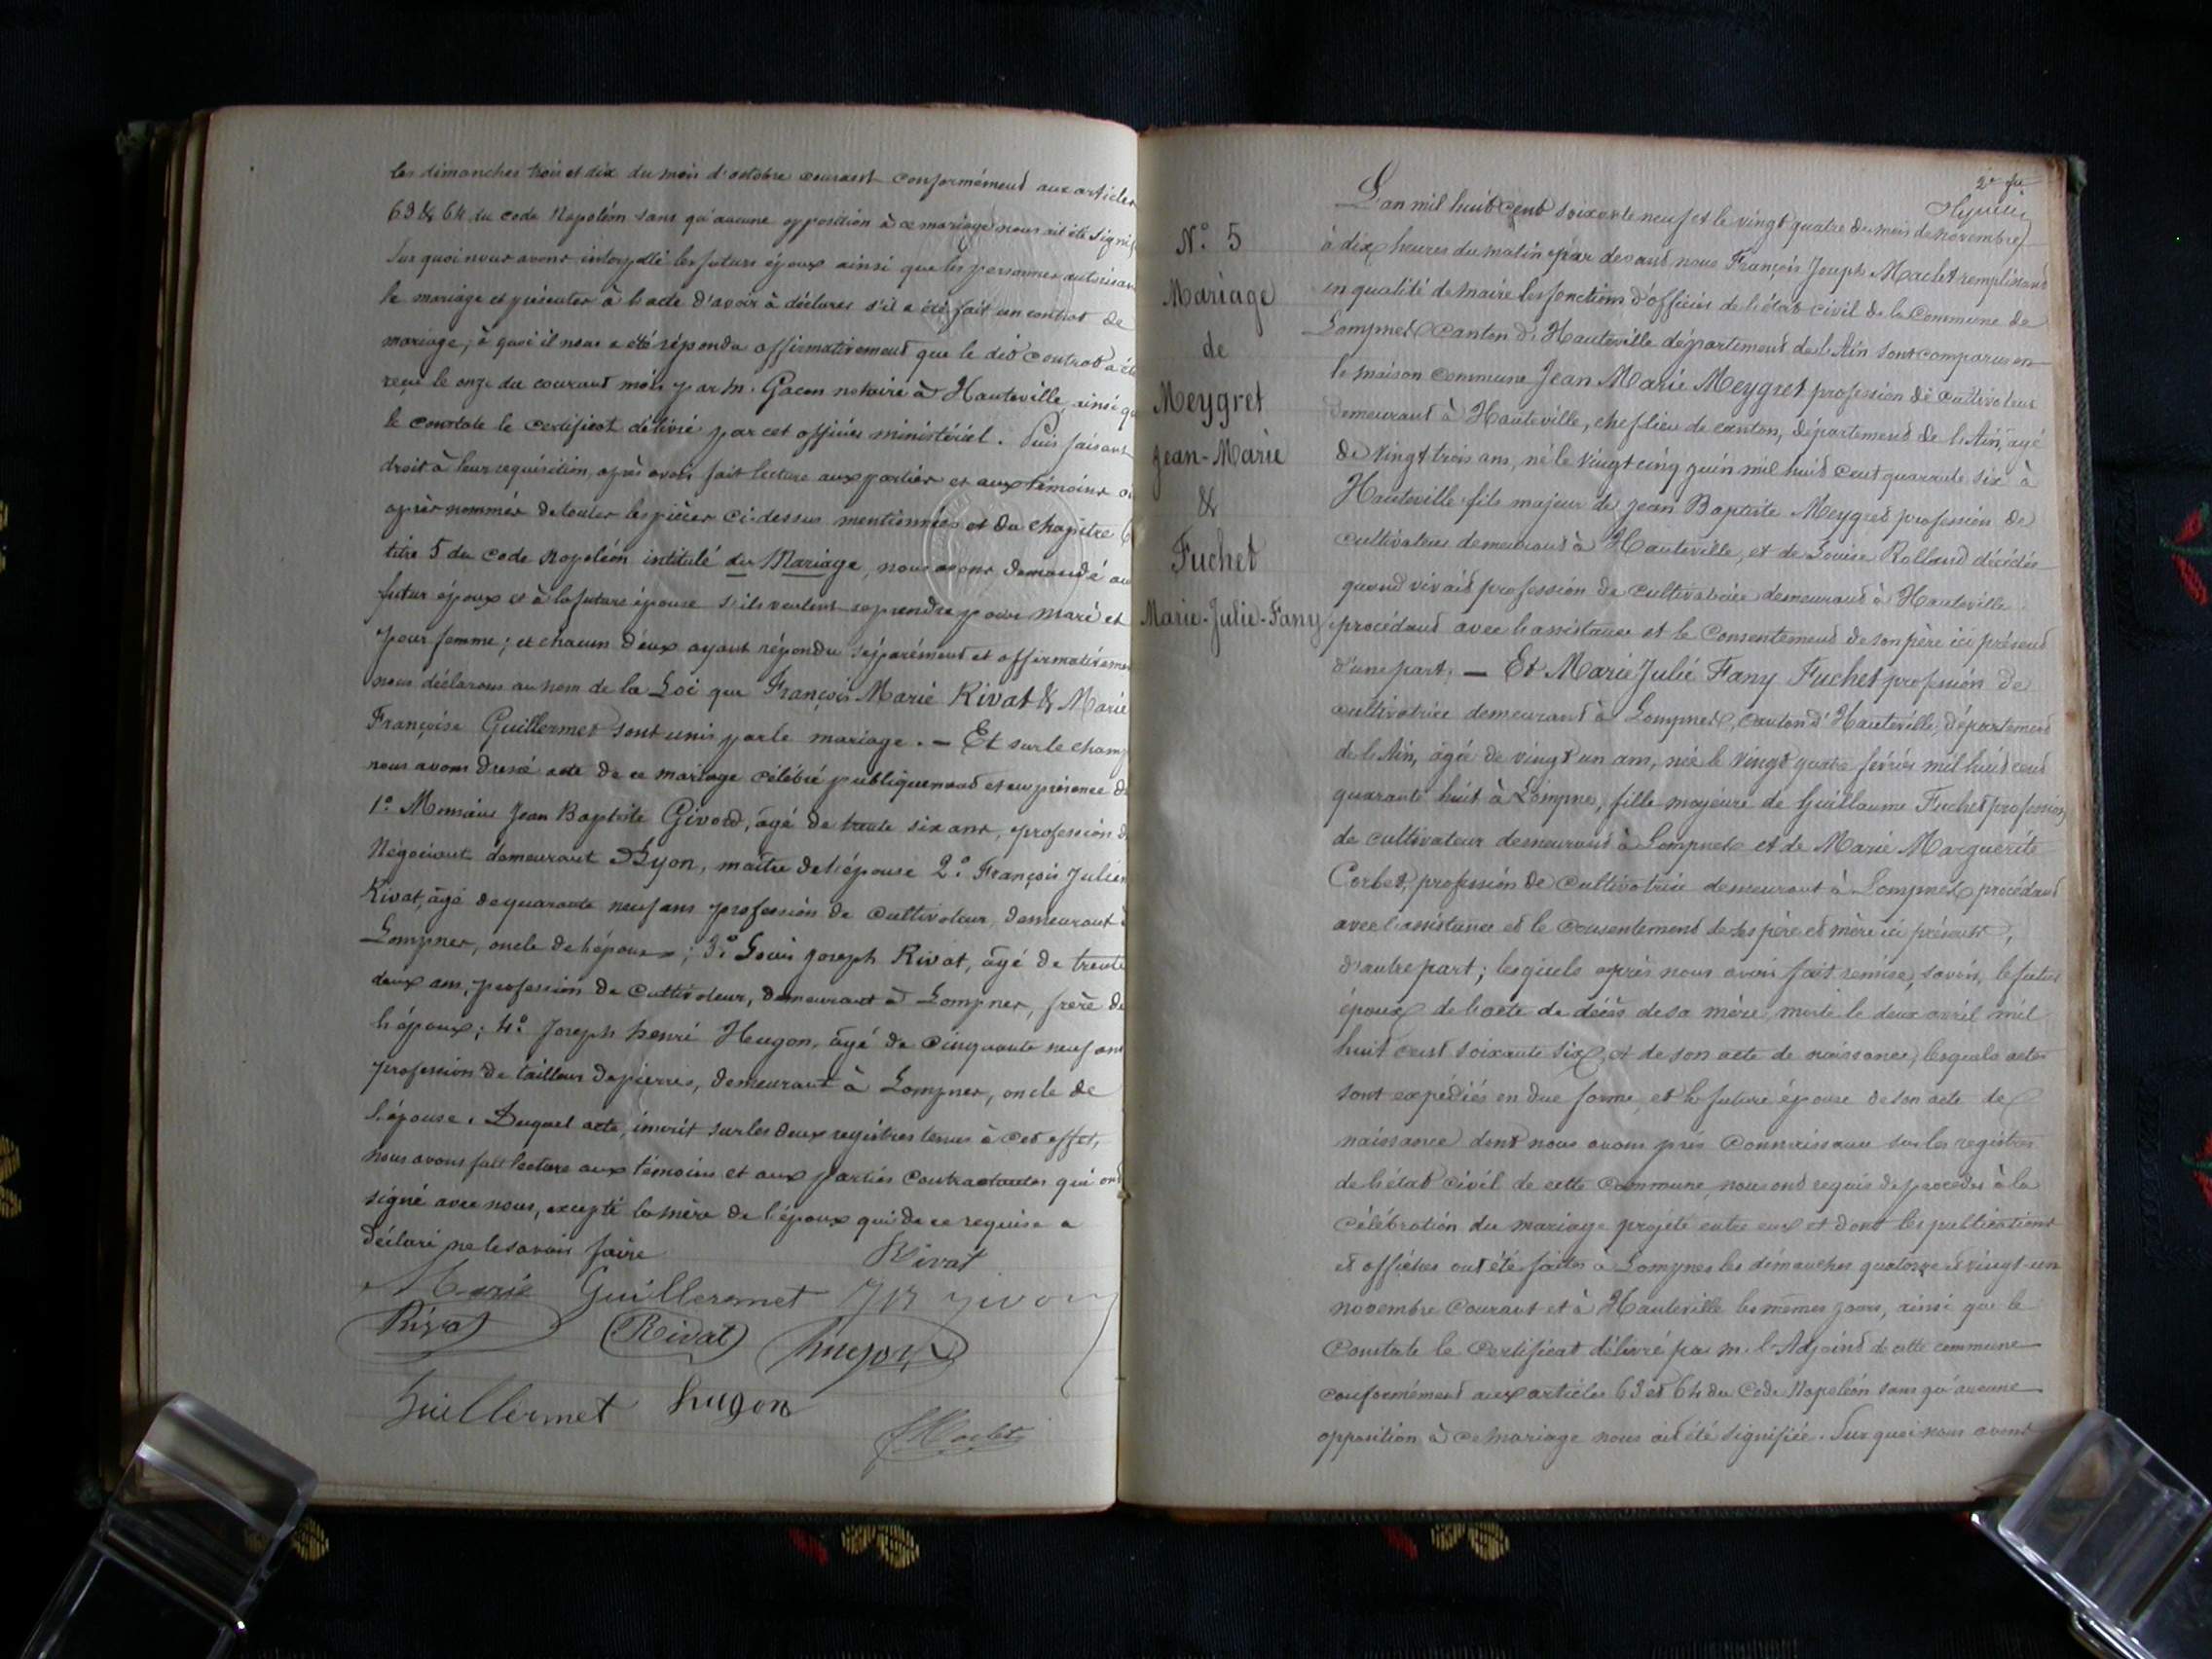 les dimanches trois et dix du mois d'octobre courant conformément aux articles
63 & 64 du code Napoléon sans qu'aucune opposition à ce mariage nous ait été signi
Sur quoi nous avons interpellé les futurs époux ainsi que les personnes autorisan
le mariage et présentes à l'acte d'avoir à déclarer s'il a été fait un contrat de
mariage, à quoi il nous a été répondu affirmativement que le dit contrat a ét
reçu le onze du courant mois par M. Gacon notaire à Hauteville ainsi qu
le constate le certificat délivré par cet officier ministériel. Puis faisant
droit à leur requisition, après avoir fait lecture aux parties et aux témoins ci
après nommés de toutes les pièces ci-dessus mentionnées et du chapitre 6
titre 5 du code Napoléon intitulé du Mariage, nous avons demandé au
futur époux et à la future épouse s'ils veulent se prendre pour mari et
pour femme; et chacun d'eux ayant répondu séparément et affirmativement
nous déclarons au nom de la Loi que François Marie Rivat & Marie
Françoise Guillermet sont unis par le mariage. — Et sur le champ
nous avons dressé acte de ce mariage célébré publiquement et en présence de
1° Monsieur Jean Baptiste Givord, âgé de trente six ans, profession de
Négociant demeurant à Lyon, maître de l'épouse 2° François Julien
Rivat, âgé de quarante neuf ans profession de cultivateur, demeurant à
Lompnes, oncle de l'époux; 3° Louis Joseph Rivat, âgé de trente
deux ans, profession de cultivateur, demeurant à Lompnes, frère de
l'époux; 4° Joseph henri Hugon, âgé de cinquante neuf ans
profession de tailleur de pierres, demeurant à Lompnes, oncle de
l'épouse. Duquel acte, inscrit sur les deux registres tenus à cet effet,
nous avons fait lecture aux témoins et aux parties contractantes qui ont
signé avec nous, excepté la mère de l'époux qui de ce requise a
déclaré ne le savoir faire
Rivat
Marie Guillermet JB givord
Rivat Rivat hugon
Guillermet hugon
Maclet
N° 5
Mariage
de
Meygret
Jean-Marie
&
Fuchet
Marie-Julie-Fany
L'an mil huit cent soixante neuf et le vingt quatre du mois de novembre
à dix heures du matin par devant nous François Joseph Maclet remplissant
en qualité de maire les fonctions d'officier de l'état civil de la Commune de
Lompnes Canton d'Hauteville département de l'Ain sont comparus en
la maison commune Jean Marie Meygret profession de cultivateur
demeurant à Hauteville, chef lieu de canton, département de l'Ain, âgé
de vingt trois ans, né le vingt cinq juin mil huit cent quarante six à
Hauteville fils majeur de Jean Baptiste Meygret profession de
cultivateur demeurant à Hauteville, et de Louise Rolland décédée
quand vivait profession de cultivatrice demeurant à Hauteville
procédant avec l'assistance et le consentement de son père ici présent
d'une part; — Et Marie Julie Fany Fuchet profession de
cultivatrice demeurant à Lompnes, canton d'Hauteville, département
de l'Ain, âgée de vingt un ans, née le vingt quatre février mil huit cent
quarante huit à Lompnes, fille majeure de Guillaume Fuchet profession
de cultivateur demeurant à Lompnes et de Marie Marguerite
Corbet, profession de cultivatrice demeurant à Lompnes procédant
avec l'assistance et le consentement de ses père et mère ici présents,
d'autre part; lesquels après nous avoir fait remise, savoir, le futur
époux de l'acte de décès de sa mère, morte le deux avril mil
huit cent soixante six, et de son acte de naissance, lesquels actes
sont expédiés en due forme, et la future épouse de son acte de
naissance dont nous avons pris connaissance sur les registres
de l'état civil de cette Commune, nous ont requis de procéder à la
célébration du mariage projeté entre eux et dont les publications
et affiches ont été faites à Lompnes les dimanches quatorze et vingt-un
novembre courant et à Hauteville les mêmes jours, ainsi que le
constate le certificat délivré par m. l'Adjoint de cette commune
conformément aux articles 63 et 64 du Code Napoléon sans qu'aucune
opposition à ce mariage nous ait été signifiée. Sur quoi nous avons